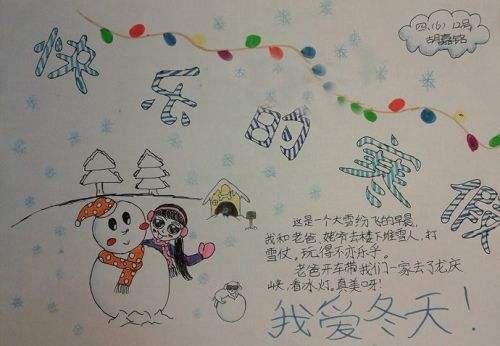 四、(6) 12号
胡嘉铭
快乐的寒假
这是一个大雪纷飞的早晨,
我和老爸、姥爷去楼下堆雪人,打
雪仗,玩得不亦乐乎。
老爸开车带我们一家去了龙庆
峡,看冰灯。真美呀!
我爱冬天!